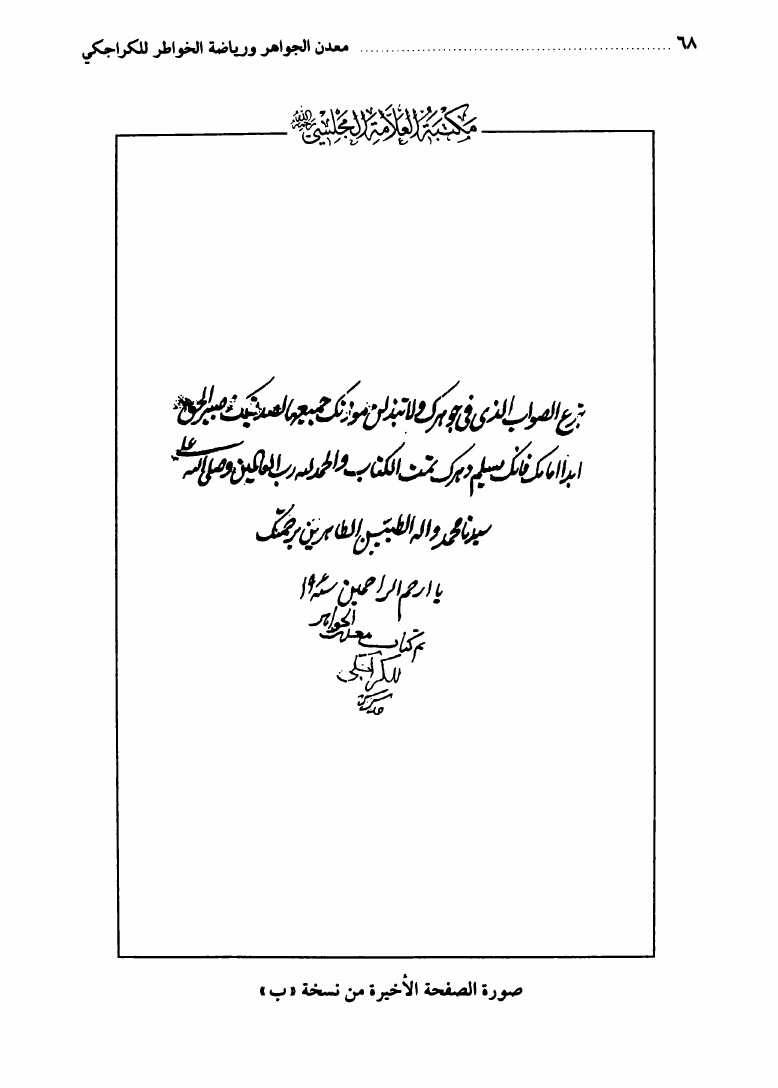 ٦٨ ........................................................ معدن الجواهر ورياضة الخواطر للكراجكي
مكتبة العلامة المجلسي رحمه الله
الصواب الذي في جوهرك ولا تبذلن موزنك جميعها لصديقك صير الحق
ابدا امامك فانك يسلم دهرك تمت الكتاب والحمد لله رب العالمين وصلى الله على
سيدنا محمد واله الطيبين الطاهرين برحمتك
يا ارحم الراحمين سنة
تم كتاب معدن الجواهر
للكراجكي
صورة الصفحة الأخيرة من نسخة «ب»